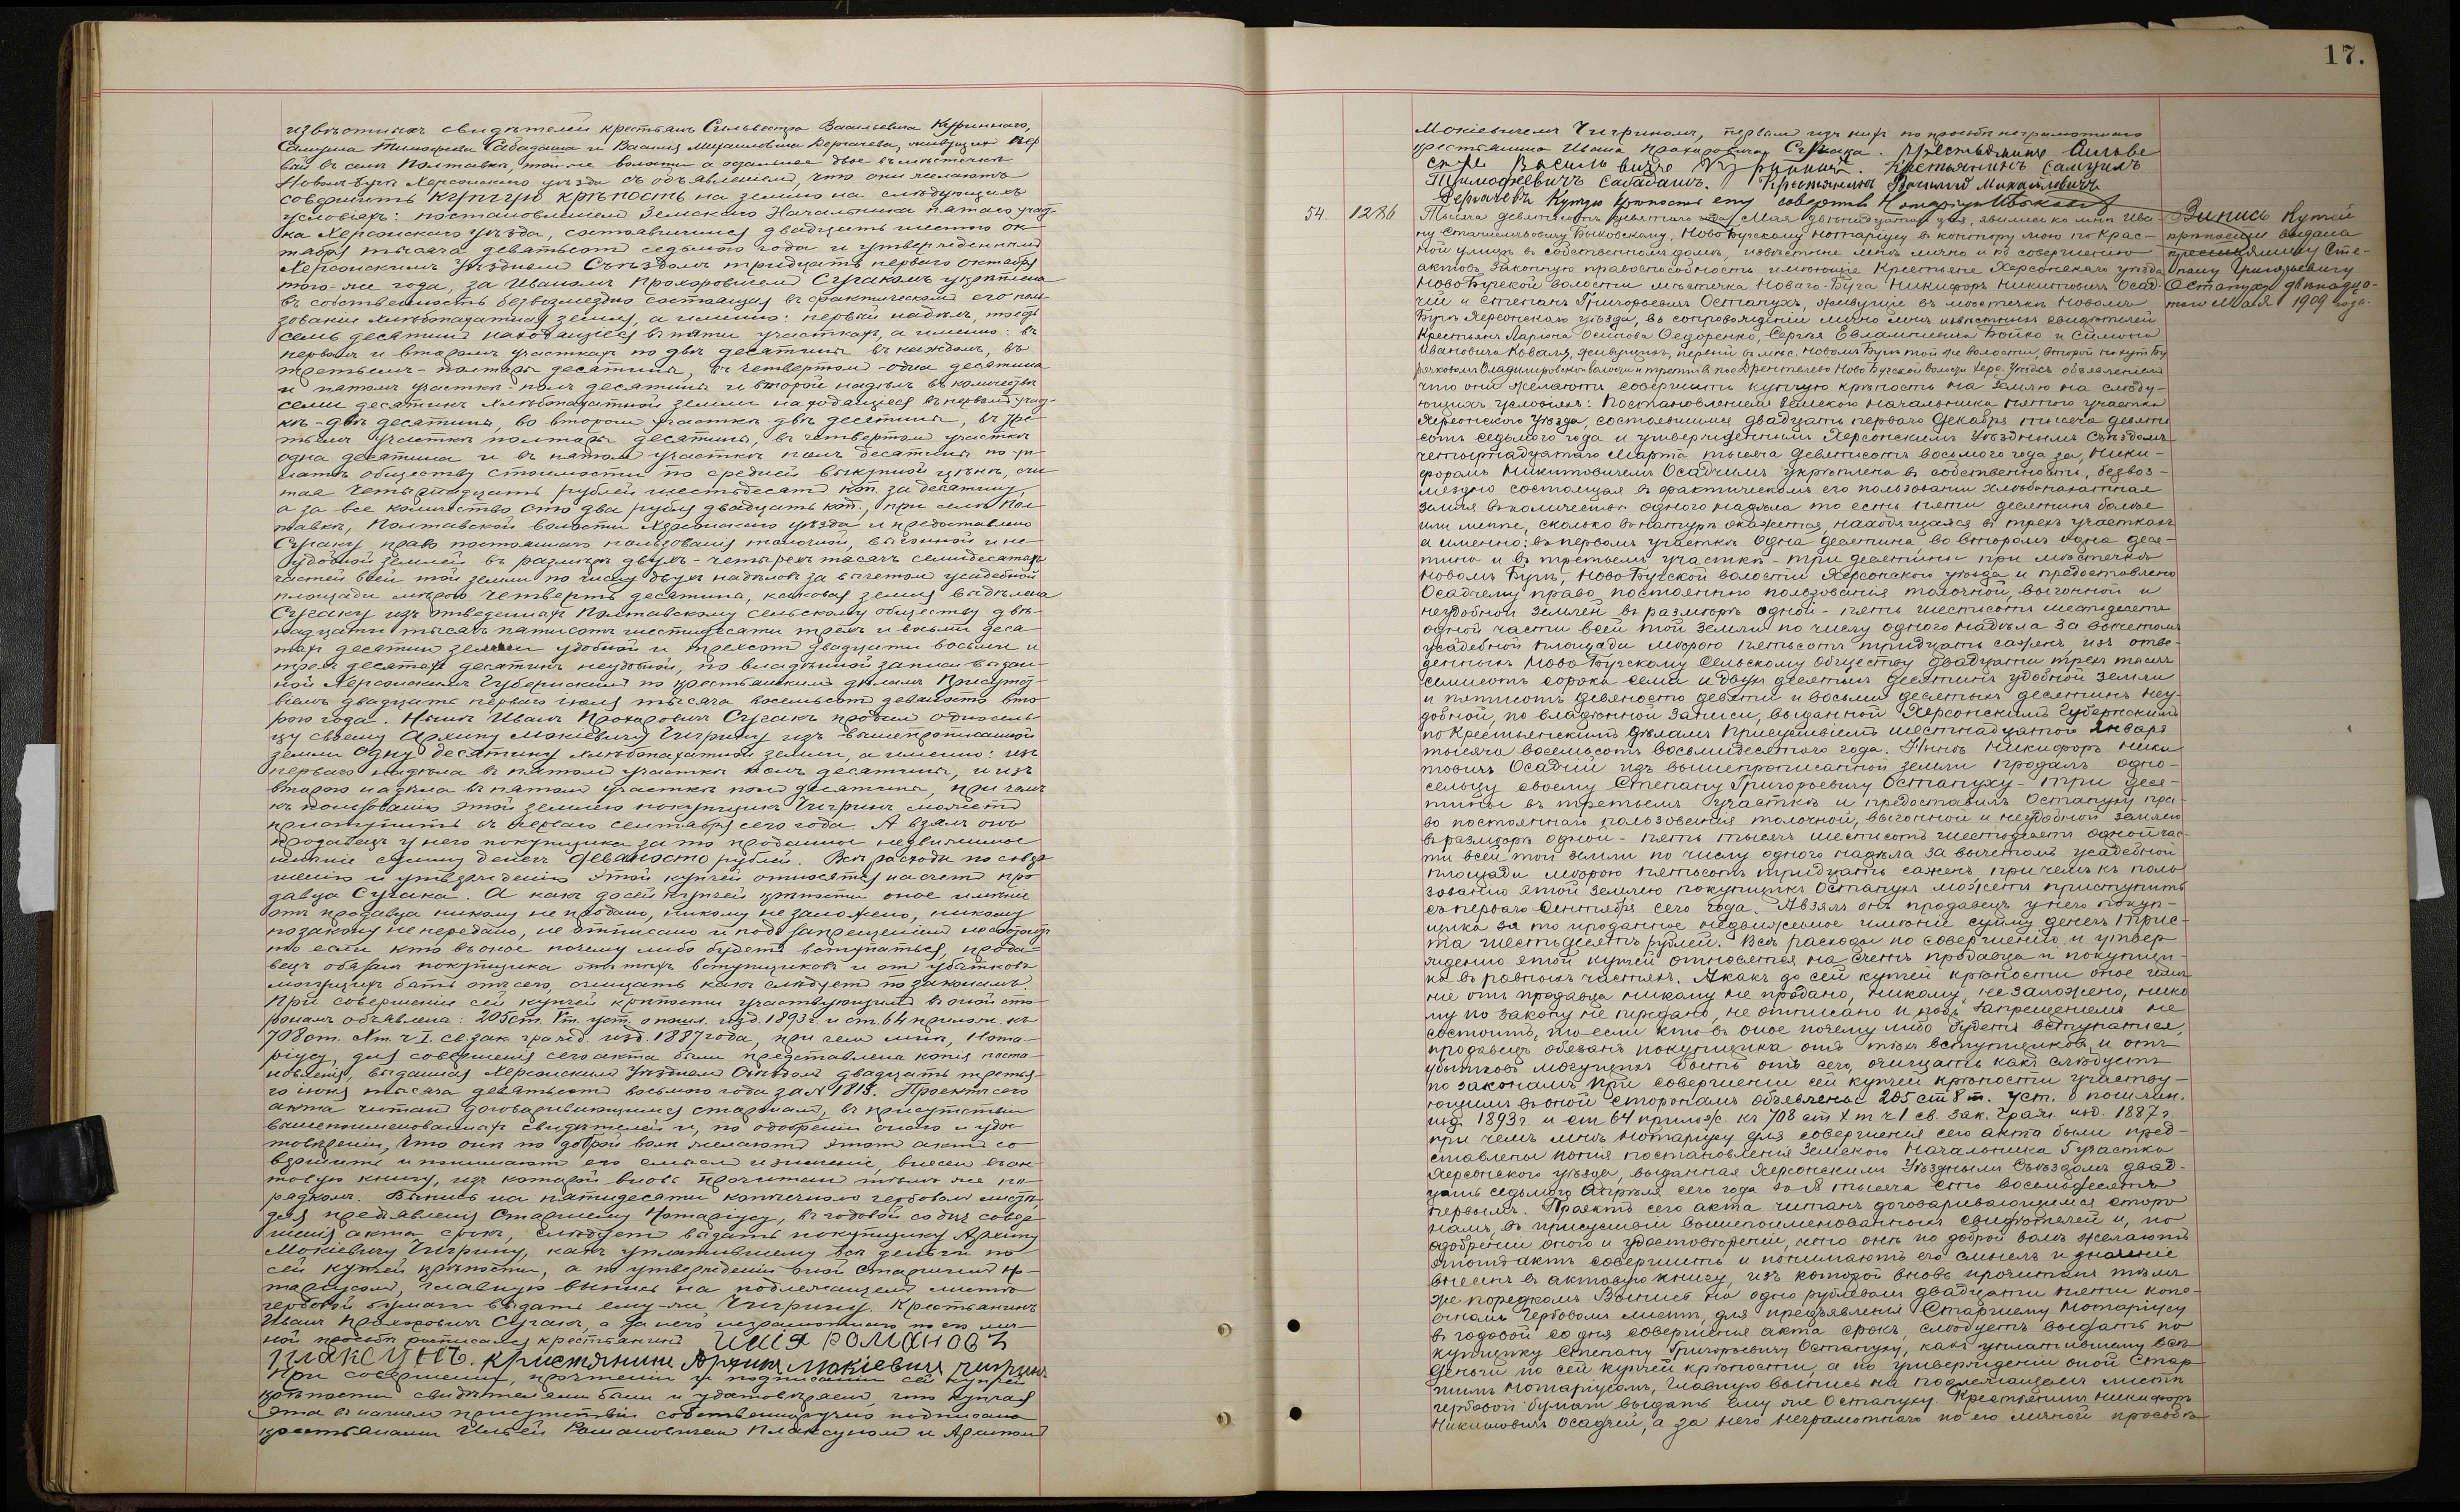 извѣстныхъ свидѣтелей крестьянъ Сильвестра Васильевича Куриннаго,
Самуила Тимофеева Сабадаша и Василія Михайловича Дергачева, живущихъ пер
вый въ селѣ Полтавкѣ, той-же волости а остальные двое въ мѣстечкѣ
Новомъ-Бугѣ Херсонскаго уѣзда съ объявленіемъ, что они желаютъ
совершить купчую крѣпость на землю на слѣдующихъ
условіяхъ: постановленіемъ Земскаго Начальника пятаго участ-
ка Херсонскаго уѣзда, состоявшимся двадцать шестого ок-
тября тысяча девятьсот седьмого года и утвержденнымъ
Херсонскимъ Уѣзднымъ Съѣздомъ тридцать перваго октября
того-же года, за Иваномъ Прохоровичемъ Сугакомъ укрѣплена
въ собственность безвозмездно состоящая въ фактическомъ его поль-
зованіи хлѣбопахатная земля, а именно: первый надѣлъ,
семь десятинъ находящіеся въ пяти участкахъ, а именно: въ
первомъ и второмъ участкахъ по двѣ десятины въ каждомъ, въ
третьемъ - полторы десятины, въ четвертомъ - одна десятина
и пятомъ участкѣ - полъ десятины и второй надѣлъ въ количествѣ
семи десятинъ хлѣбопахатной земли находящіеся въ первомъ участ-
кѣ - двѣ десятины, во второмъ участкѣ двѣ десятины, въ тре
тьемъ участкѣ полторы десятины, въ четвертомъ участкѣ
одна десятина и въ пятомъ участкѣ полъ десятины по уп
латѣ обществу стоимости по средней выкупной цѣнѣ, счи
тая четырнадцать рублей шестьдесятъ коп. за десятину,
а за все количество сто два рубля двадцать коп., при селѣ Пол
тавкѣ, Полтавской волости Херсонскаго уѣзда и предоставлено
Сугаку право постояннаго пользованія толочной, выгонной и не
удобной землей въ размѣрѣ двухъ - четырехъ тысячъ семидесятыхъ
частей всей той земли по числу двухъ надѣловъ за вычетомъ усадебной
площади мѣрою четверть десятины, каковая земля выдѣлена
Сугаку изъ отведенныхъ Полтавскому сельскому обществу двѣ-
надцати тысячъ пятисотъ шестидесяти трехъ и восьми деся
тыхъ десятин земли удобной и трехсот двадцати восьми и
трехъ десятыхъ десятинъ неудобной, по владѣнной записи выдан-
ной Херсонскимъ Губернскимъ по крестьянскимъ дѣламъ Присутст-
віемъ двадцать перваго іюля тысяча восемьсот девяносто вто
рого года. Нынѣ Иванъ Прохоровичъ Сугакъ продалъ односель-
цу своему Архипу Мокіевичу Чигрину изъ вышепрописанной
земли одну десятину хлѣбопахатной земли, а именно: изъ
перваго надѣла въ пятомъ участкѣ полъ десятины, и изъ
второго надѣла въ пятомъ участкѣ полъ десятины, при чемъ
къ пользованію этой землею покупщикъ Чигринъ можетъ
приступить съ перваго сентября сего года. А взялъ онъ
продавецъ у него покупщика за то проданное недвижимое
имѣніе сумму денегъ девяносто рублей. Всѣ расходы по совер
шенію и утвержденію этой купчей относятся на счетъ про
давца Сугака. А какъ до сей купчей крѣпости оное имѣніе
отъ продавца никому не продано, никому не заложено, никому
по закону не передано, не отписано и подъ запрещеніемъ не состоитъ
то если кто въ оное почему либо будетъ вступаться, прода-
вецъ обязанъ покупщика отъ тѣхъ вступщиковъ и отъ убытковъ
могущихъ быть отъ сего, очищать какъ слѣдуетъ по законамъ.
При совершеніи сей купчей крѣпости участвующимъ въ оной сто-
ронамъ объявлена: 205 ст. Vт. уст. о пошл. изд. 1893 г. и ст. 64 прилож. къ
708 ст. Хт. ч I. св. зак. гражд. изд. 1887 года, при чемъ мнѣ, Нота-
ріусу, для совершенія сего акта были представлена копія поста-
новленія, выданная Херсонскимъ Уѣзднымъ Съѣздомъ двадцать третья-
го іюня тысяча девятьсот восьмого года за № 1813. Проектъ сего
акта читанъ договаривающимся сторонамъ, въ присутствіи
вышепоименованныхъ свидѣтелей и, по одобреніи онаго и удос
товѣреніи, что они по доброй волѣ желаютъ этотъ актъ со
вершить и понимаютъ его смыслъ и значеніе, внесен въ ак-
товую книгу, изъ которой вновь прочитанъ тѣмъ же по
рядкомъ. Выпись на пятидесяти копѣечномъ гербовомъ листѣ,
для предъявленія Старшему Нотаріусу, въ годовой со дня совер
шенія акта срокъ, слѣдуетъ выдать покупщику Архипу
Мокіевичу Чигрину, какъ уплатившему всѣ деньги по
сей купчей крѣпости, а по утвержденіи оной Старшимъ Но-
таріусомъ, главную выпись на подлежащемъ листѣ
гербовой бумаги выдать ему-же, Чигрину. Крестьянинъ
Иванъ Прохоровичъ Сугакъ, а за него неграмотнаго по его лич-
ной просьбѣ росписался крестьянинъ Илія Романовъ
Плаксунъ. Кристянинъ Архипъ Мокіевичъ Чигринъ
При совершеніи, прочтеніи и подписаніи сей купчей
крѣпости свидѣтелями были и удостовѣряемъ, что купчая
эта въ нашемъ присутствіи собственноручно подписана
крестьянами Ильей Романовичемъ Плаксуномъ и Архипомъ
17.
Мокіевичемъ Чигриномъ, первымъ изъ нихъ по просьбѣ неграмотнаго
крестьянина Ивана Прохоровича Сугака. Крестьянинъ Сильве
стръ Васильевичъ Куринный. Крестьянинъ Самуилъ
Тимофѣевичъ Сабадашъ. Крестьянинъ Василій Михайловичъ
Дергачевъ Купчую крѣпость сію совершилъ Нотаріусъ Быковскій
54. 1286 Тысяча девятьсотъ девятаго года Мая двѣнадцатаго дня, явились ко мнѣ Ива
ну Станиславовичу Быковскому, Ново Бугскому Нотаріусу въ контору мою по Крас-
ной улицѣ въ собственномъ домѣ, извѣстные мнѣ лично и къ совершенію
актовъ законную правоспособность имѣющіе Крестьяне Херсонскаго уѣзда
Ново Бугской волости мѣстечка Новаго-Буга Никифоръ Никитовичъ Осад-
чій и Степанъ Григорьевичъ Остапухъ, живущіе въ мѣстечкѣ Новомъ
Бугѣ Херсонскаго уѣзда, въ сопровожденіи лично мнѣ извѣстныхъ свидѣтелей
Крестьянъ Ларіона Осипова Федоренко, Сергѣя Евлампіевича Бойко и Симона
Ивановича Коваля, живущихъ, первый въ мѣс. Новомъ Бугѣ той же волости, второй
Владимировской волости и третій въ пос. Дрентелево Ново Бугской волости Херс. Уѣзда съ объявленіемъ
что они желаютъ совершить купчую крѣпость на Землю на слѣду-
ющихъ условіяхъ: Постановленіемъ Земскаго Начальника пятого участка
Херсонского Уѣзда, состоявшимся двадцать перваго Декабря тысяча девять
сотъ седьмого года и утвержденнымъ Херсонскимъ Уѣзднымъ Съѣздомъ
четырнадцатаго Марта тысяча девятьсотъ восьмого года за, Ники-
форомъ Никитовичемъ Осадчимъ укрѣплена въ собственность, безвоз-
мездно состоящая въ фактическомъ его пользованіи хлѣбопахатная
Земля въ количествѣ одного надѣла то есть пяти десятинъ болѣе
или менѣе, сколько въ натурѣ окажется, находящаяся въ трехъ участкахъ
а именно: въ первомъ участкѣ одна десятина во второмъ одна деся-
тина и въ третьемъ участкѣ - три десятины при мѣстечкѣ
Новомъ Бугѣ, Ново Бугской волости Херсонскаго уѣзда и предоставлено
Осадчему право постояннаго пользованія толочной, выгонной и
неудобной землей въ размѣрѣ одной - пять шестисотъ шестьдесятъ
одной части всей той Земли по числу одного надѣла за вычетомъ
усадебной площади мѣрою пятьсотъ тридцать саженъ, изъ отве-
денныхъ Ново Бугскому Сельскому обществу двадцати трехъ тысячъ
семисотъ сорока семи и двухъ десятыхъ десятинъ удобной Земли
и пятисотъ девяносто девяти и восьми десятыхъ десятинъ неу-
добной, по владѣнной Записи, выданной Херсонскимъ Губернскимъ
по Крестьянскимъ дѣламъ Присутствіемъ шестнадцатаго Января
тысяча восемьсотъ восьмидесятаго года. Нынѣ Никифоръ Ники
товичъ Осадчій изъ вышепрописанной земли продалъ одно-
сельцу своему Степану Григорьевичу Остапуху - три деся-
тины въ третьемъ участкѣ и предоставилъ Остапуху пра-
во постояннаго пользованія толочной, выгонной и неудобной Землею
въ размѣрѣ одной - пять тысячъ шестисотъ шестьдесятъ одной час-
ти всей той Земли по числу одного надѣла за вычетомъ усадебной
площади мѣрою пятьсотъ тридцать саженъ, при чемъ къ поль
зованію этой Землею покупщикъ Остапухъ можетъ приступить
съ перваго Сентября сего года. А взялъ онъ продавецъ у него покуп-
щика за то проданное недвижимое имѣніе сумму денегъ трис-
та шестьдесятъ рублей. Всѣ расходы по совершенію и утвер
жденію этой купчей относятся на счетъ продавца и покупщи-
ка въ равныхъ частяхъ. А какъ до сей купчей крѣпости оное имѣ
ніе отъ продавца никому не продано, никому не заложено, нико
му по закону не передано, не отписано и подъ Запрещеніемъ не
состоитъ, то если кто въ оное почему либо будетъ вступаться,
продавецъ обязанъ покупщика отъ тѣхъ вступщиковъ и отъ
убытковъ могущихъ быть отъ сего, очищать какъ слѣдуетъ
по законамъ При совершеніи сей купчей крѣпости участву-
ющимъ въ оной Сторонамъ объявлены: 205 ст 8 т. Уст. о пошлин.
изд. 1893 г. и ст 64 прилож. къ 708 ст Х т ч 1 св. Зак. Граж. изд. 1887 г.
при чемъ мнѣ Нотаріусу для совершенія сего акта были пред-
ставлены копія постановленія Земскаго Начальника 5 участка
Херсонскаго уѣзда, выданная Херсонскимъ Уѣзднымъ Съѣздомъ двад-
цать седьмого Апрѣля сего года за № тысяча сто восемьдесятъ
первымъ. Проэктъ сего акта читанъ договаривающимся сторо
намъ, въ присутствіи вышепоименованныхъ свидѣтелей и, по
одобреніи оного и удостовѣреніи, что они по доброй волѣ желаютъ
этотъ актъ совершить и понимаютъ его смыслъ и значеніе
внесенъ въ актовую книгу, изъ которой вновь прочитанъ тѣмъ
же порядкомъ Выпись на одно рублевомъ двадцати пяти копѣ-
ечномъ Гербовомъ листѣ, для предъявленія Старшему Нотаріусу
въ годовой со дня совершенія акта срокъ, слѣдуетъ выдать по
купщику Степану Григорьевичу Остапуху, какъ уплатившему всѣ
деньги по сей купчей крѣпости, а по утвержденіи оной Стар
шимъ Нотаріусомъ, Главную выпись на подлежащемъ листѣ
гербовой бумаги выдать Ему же Остапуху. Крестьянинъ Никифоръ
Никитовичъ Осадчій, а за него неграмотнаго по его личной просьбѣ
Выпись купчей
крѣпости выдана
крестьянину Сте-
пану Григорьевичу
Остапуху двѣнадца-
таго Мая 1909 года.